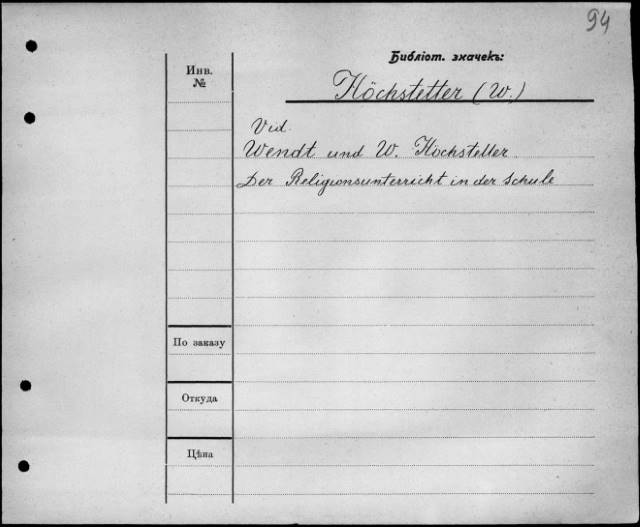 94
Библіот. значекъ:
Инв.
№
Höchstetter (W.)
Vid.
Wendt und W. Höchstetter.
Der Religionsunterricht in der Schule
По заказу
Откуда
Цѣна